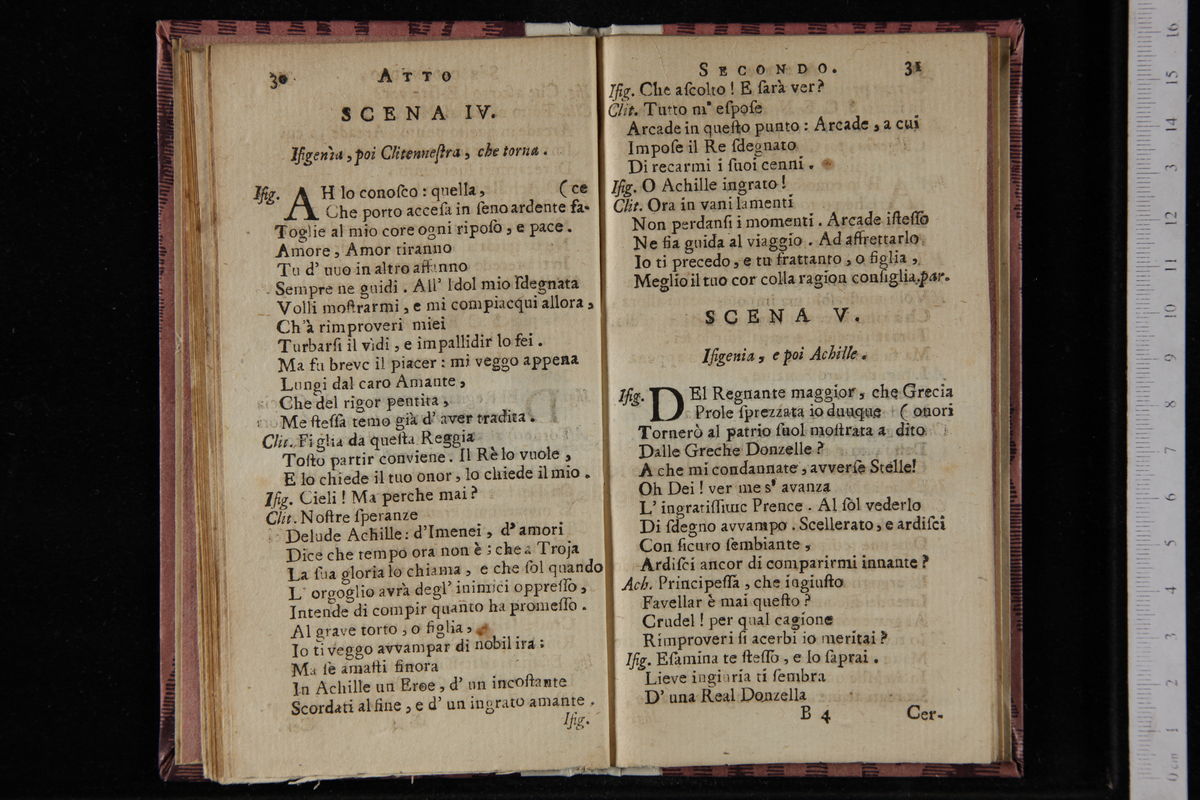 30 ATTO
SCENA IV.
Ifigenìa, poi Clitenneſtra, che torna.
Ifig. AH lo conoſco: quella, (ce
Che porto acceſa in ſeno ardente fa-
Toglie al mio core ogni ripoſo, e pace.
Amore, Amor tiranno
Tu d' uuo in altro affanno
Sempre ne guidi. All' Idol mio ſdegnata
Volli moſtrarmi, e mi compiacqui allora,
Ch'à rimproveri miei
Turbarſi il vidi, e impallidir lo fei.
Ma fu breve il piacer: mi veggo appena
Lungi dal caro Amante,
Che del rigor pentita,
Me ſteſſa temo già d' aver tradita.
Clit. Figlia da queſta Reggia
Toſto partir conviene. Il Rè lo vuole,
E lo chiede il tuo onor, lo chiede il mio.
Ifig. Cieli! Ma perche mai?
Clit. Noſtre ſperanze
Delude Achille: d'Imenei, d'amori
Dice che tempo ora non è; che a Troja
La ſua gloria lo chiama, e che ſol quando
L' orgoglio avrà degl' inimici oppreſſo,
Intende di compir quanto ha promeſſo.
Al grave torto, o figlia,
Io ti veggo avvampar di nobil ira:
Ma ſè amaſti finora
In Achille un Eroe, d' un incoſtante
Scordati al fine, e d' un ingrato amante.
Ifig.
SECONDO. 31
Ifig. Che aſcolto! E ſarà ver?
Clit. Tutto m' eſpoſe
Arcade in queſto punto: Arcade, a cui
Impoſe il Re ſdegnato
Di recarmi i ſuoi cenni.
Ifig. O Achille ingrato!
Clit. Ora in vani lamenti
Non perdanſi i momenti. Arcade iſteſſo
Ne ſia guida al viaggio. Ad affrettarlo
Io ti precedo, e tu frattanto, o figlia,
Meglio il tuo cor colla ragion configlia. par.
SCENA V.
Ifigenia, e poi Achille.
Ifig. DEl Regnante maggior, che Grecia
Prole ſprezzata io duuque (onori
Tornerò al patrio ſuol moſtrata a dito
Dalle Greche Donzelle?
A che mi condannate, avverſe Stelle!
Oh Dei! ver me s' avanza
L' ingratiſſimo Prence. Al ſol vederlo
Di ſdegno avvampo. Scellerato, e ardiſci
Con ſicuro ſembiante,
Ardiſci ancor di comparirmi innante?
Ach. Principeſſa, che ingiuſto
Favellar è mai queſto?
Crudel! per qual cagione
Rimproveri ſi acerbi io meritai?
Ifig. Eſamina te ſteſſo, e lo ſaprai.
Lieve ingiuria ti ſembra
D' una Real Donzella
B 4 Cer-
0 cm 1 2 3 4 5 6 7 8 9 10 11 12 13 14 15 16